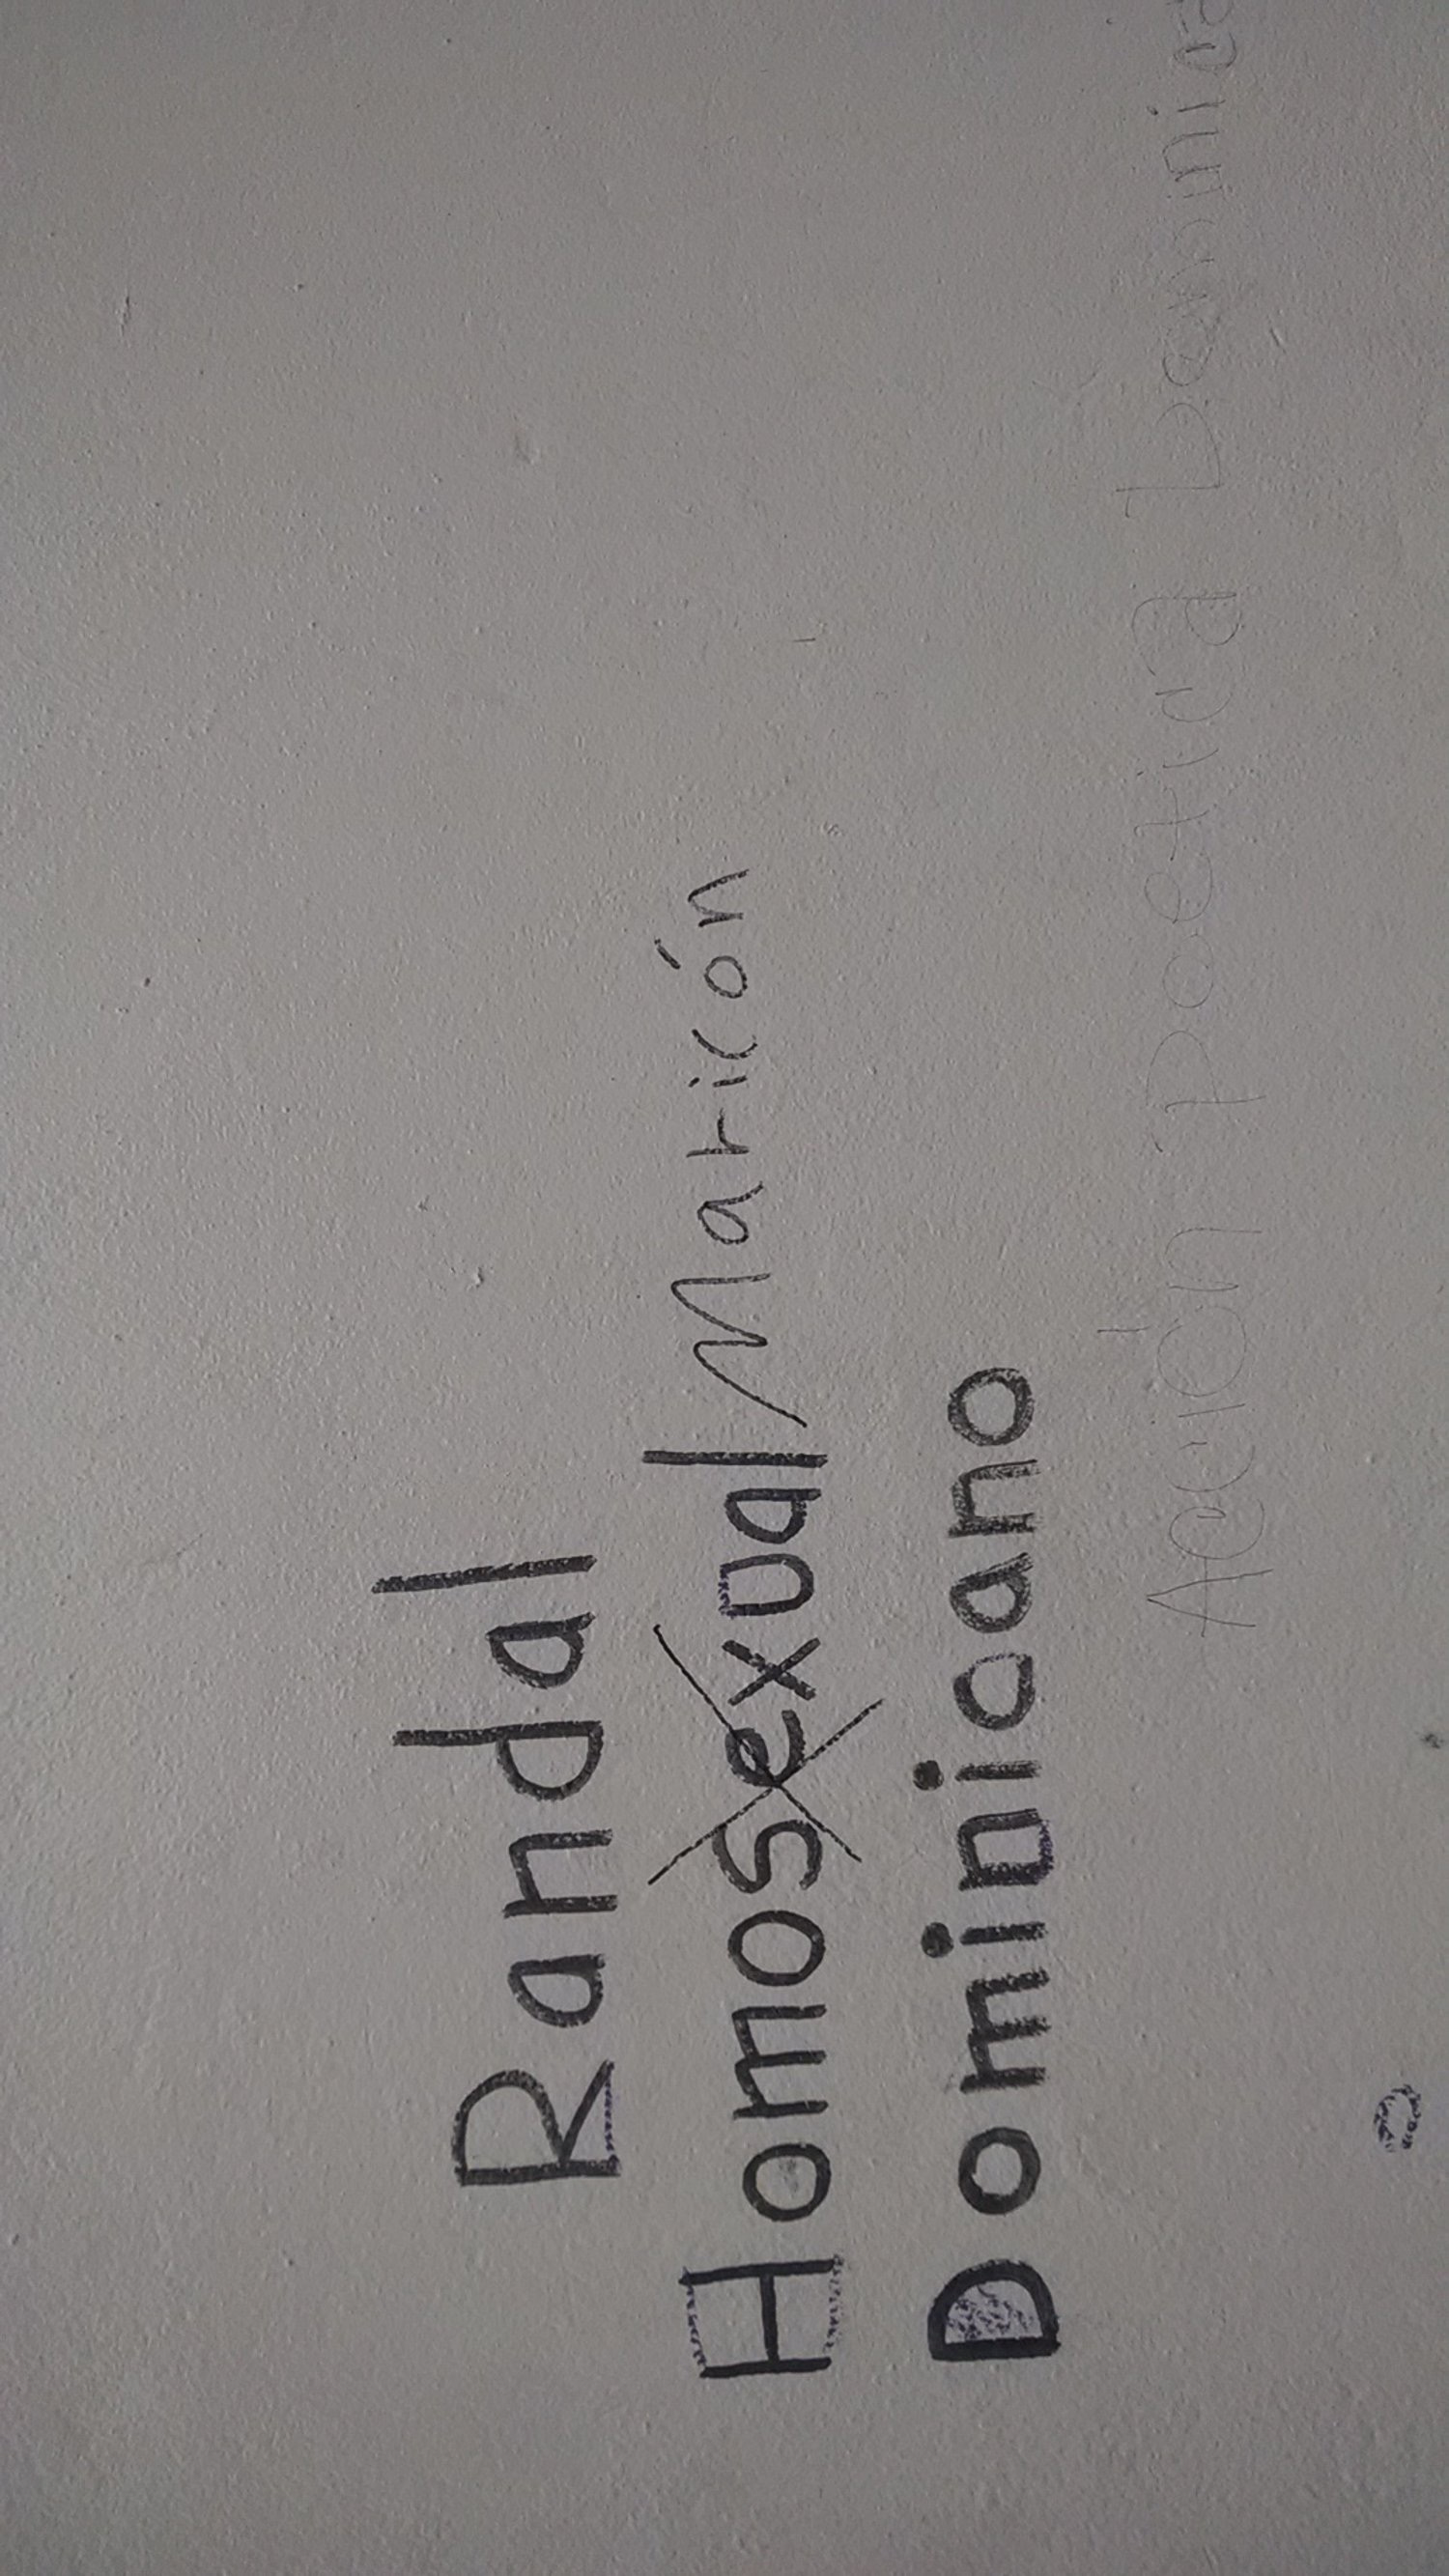 Randal
Homosexual Maricón
Dominicano
Acción poetica